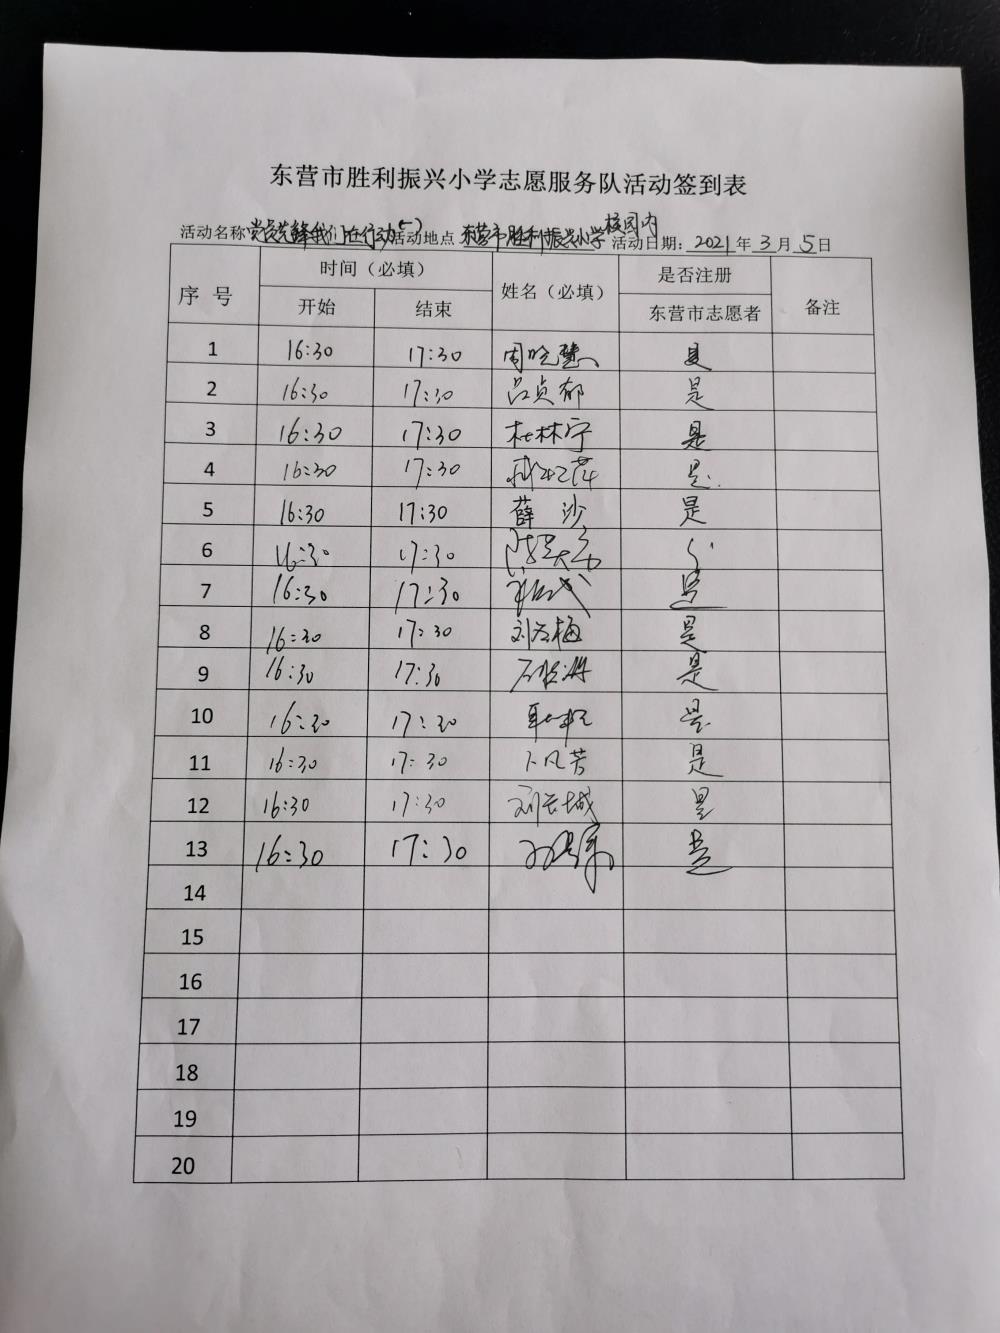 东营市胜利振兴小学志愿服务队活动签到表
活动名称 党员先锋我们在行动(一) 活动地点 东营市胜利振兴小学校园内 活动日期：2021年3月5日
序号 时间（必填） 姓名（必填） 是否注册 备注
开始 结束 东营市志愿者
1 16:30 17:30 周晓慧 是
2 16:30 17:30 吕贞郁 是
3 16:30 17:30 杜林宁 是
4 16:30 17:30 是
5 16:30 17:30 薛沙 是
6 16:30 17:30
7 16:30 17:30 是
8 16:30 17:30 是
9 16:30 17:30 是
10 16:30 17:30 是
11 16:30 17:30 卜凡芳 是
12 16:30 17:30 刘长城 是
13 16:30 17:30 是
14
15
16
17
18
19
20